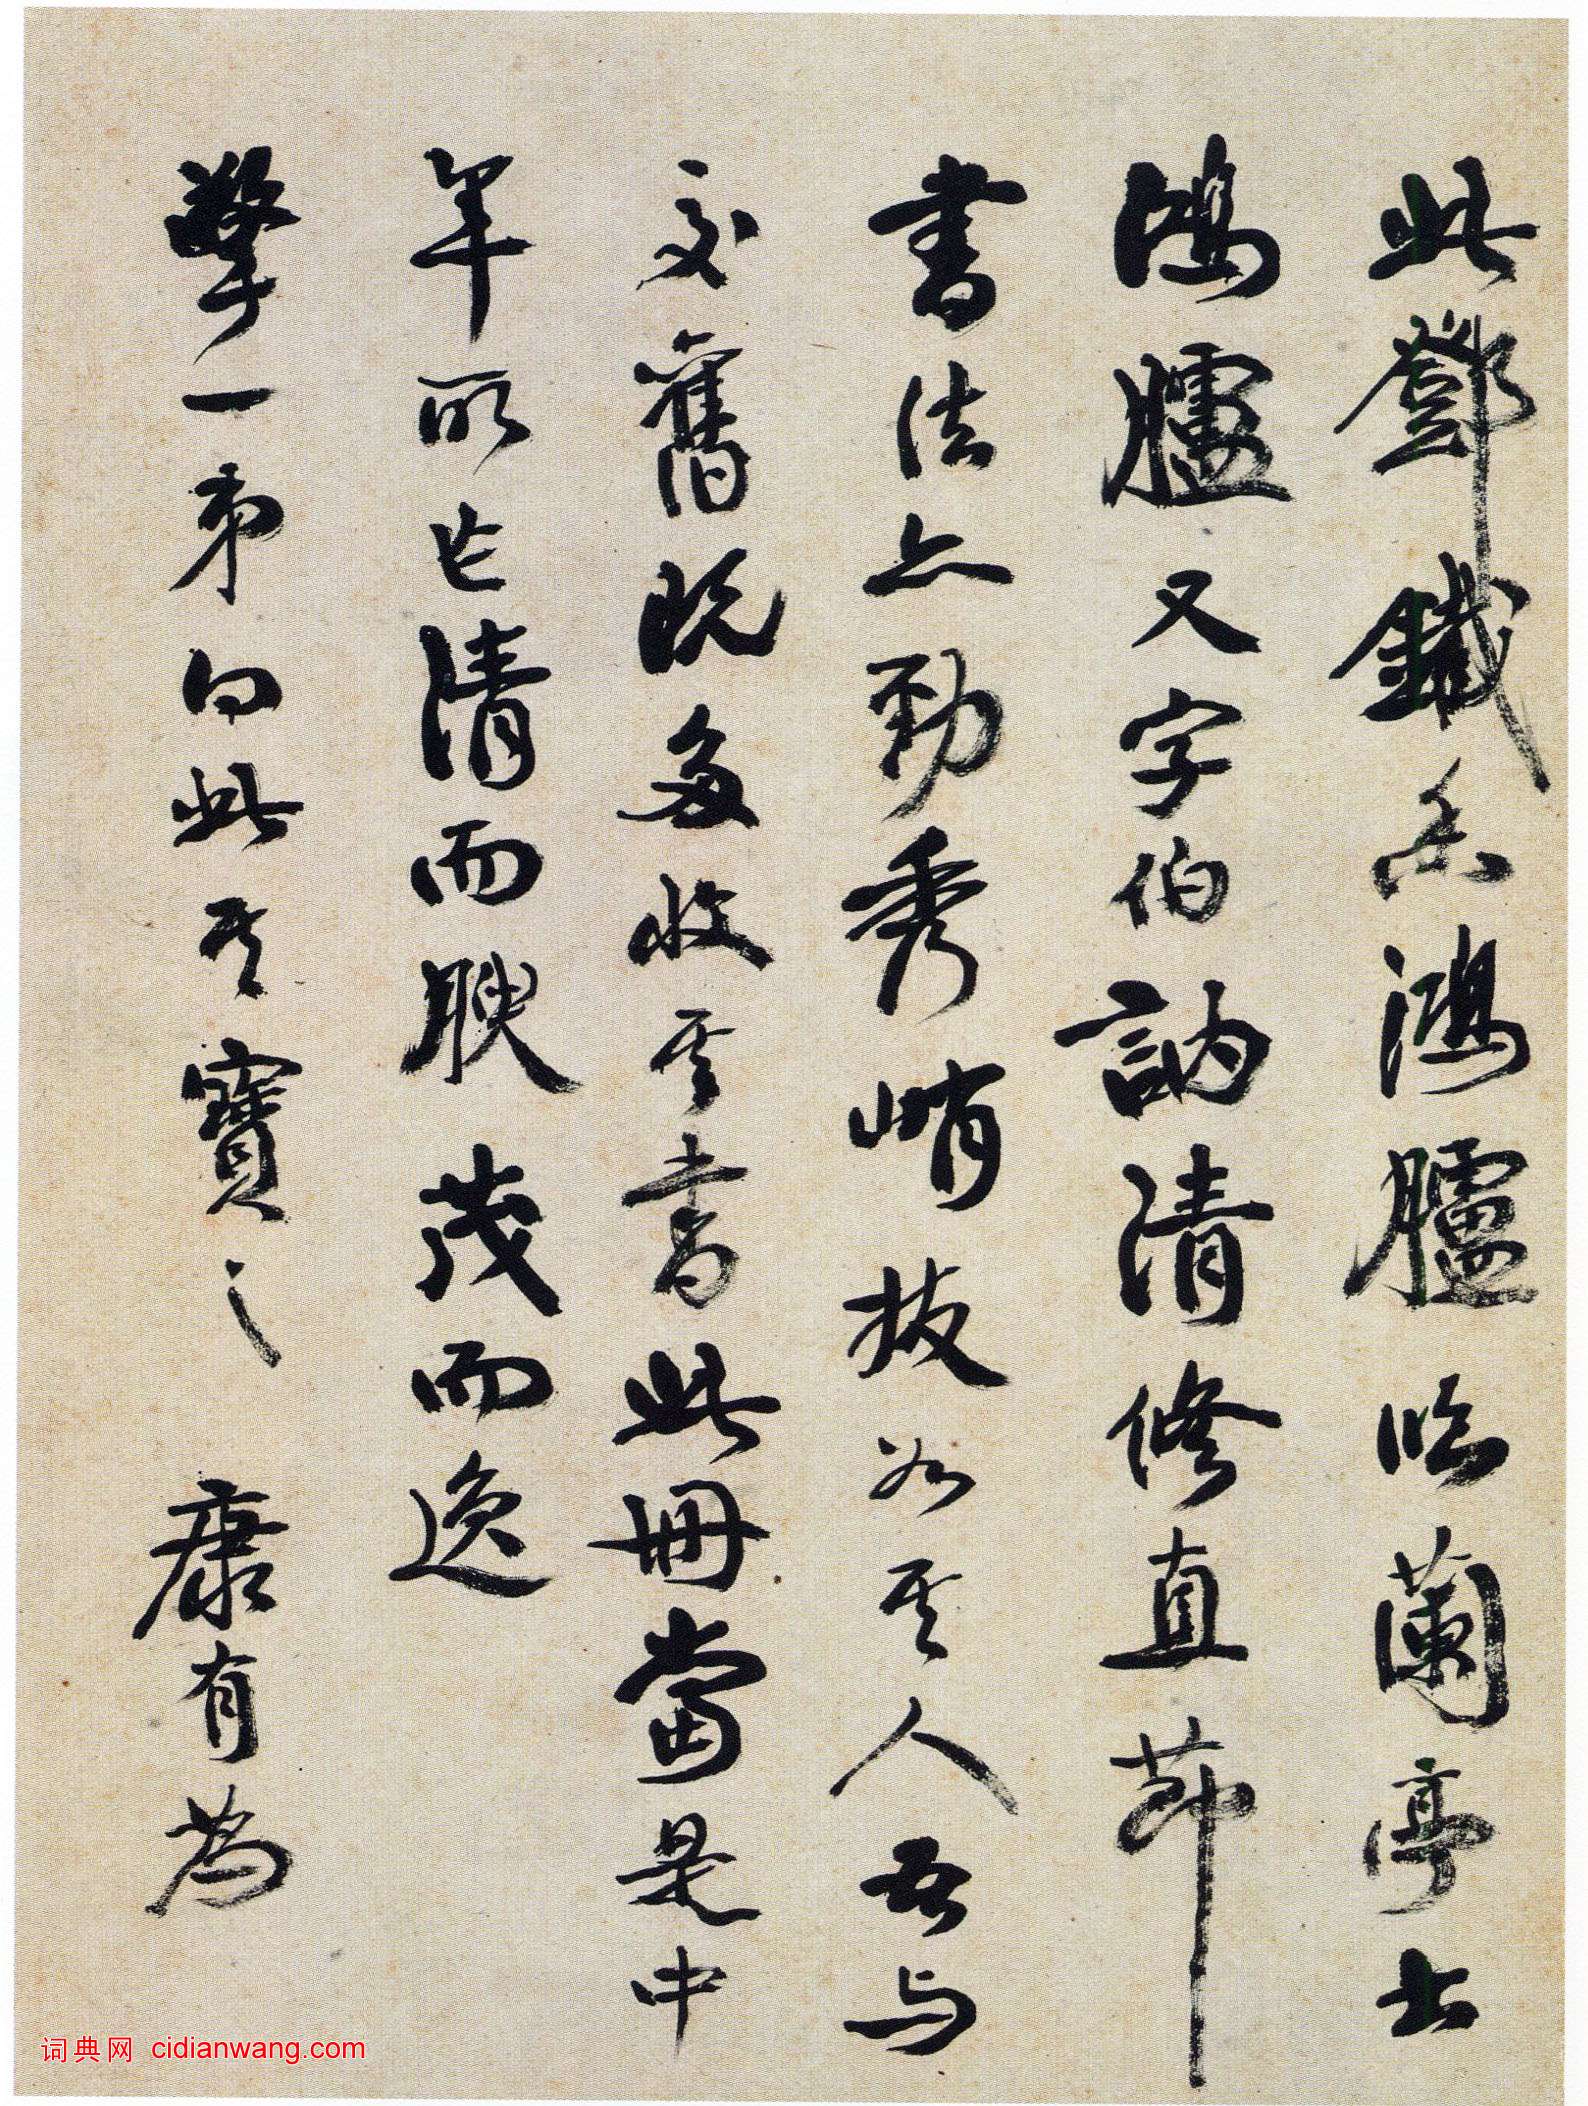 此鄧鐵香鴻臚臨蘭亭也
鴻臚又字伯訥清修直節
書法亦勁秀峭拔如其人吾与
交舊既多收其書此冊當是中
年所作清而腴茂而逸
擎一弟此其寶之 康有為
词典网 cidianwang.com